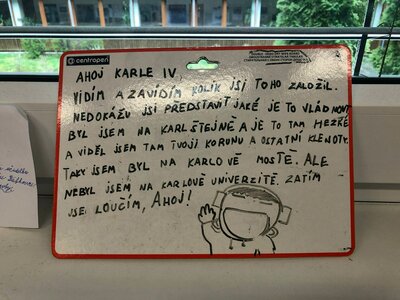 centropen
AHOJ KARLE IV.
VIDÍM A ZAVIDÍM KOLIK JSI TOHO ZALOŽIL.
NEDOKÁŽU JSI PŘEDSTAVIT JAKÉ JE TO VLÁDNOUT
BYL JSEM NA KARLŠTEJNĚ A JE TO TAM HEZKÉ
A VIDĚL JSEM TAM TVOJI KORUNU A OSTATNÍ KLENOTY.
TAKY JSEM BYL NA KARLOVĚ MOSTĚ. ALE
NEBYL JSEM NA KARLOVĚ UNIVERZITĚ. ZATÍM
JSE LOUČÍM, AHOJ!